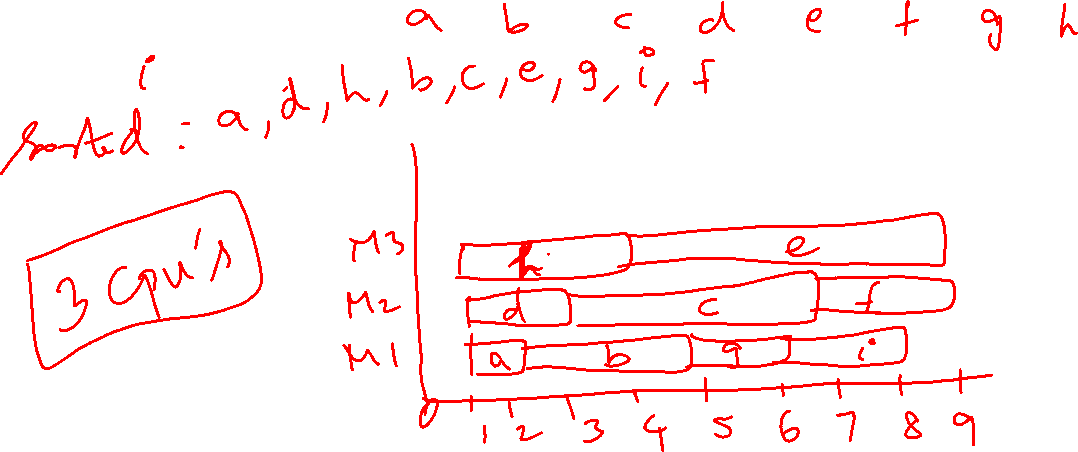 a b c d e f g h
i
Sorted : a, d, h, b, c, e, g, i, f
3 Cpu's
M3 h e
M2 d c f
M1 a b g i
0 1 2 3 4 5 6 7 8 9